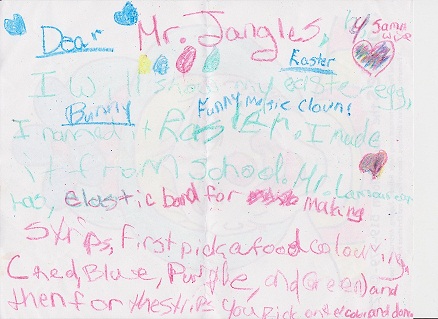 Dear Mr. Jangles, by Samm
wise
Easter
I will show my easter egg,
Bunny Funny music clown!
I named it Rasten. I made
it from school. Mr.
has, elastic band for making
strips, First pick a food colouring.
(red, Blue, Purple, and Green) and
then for the strips You Pick one color and